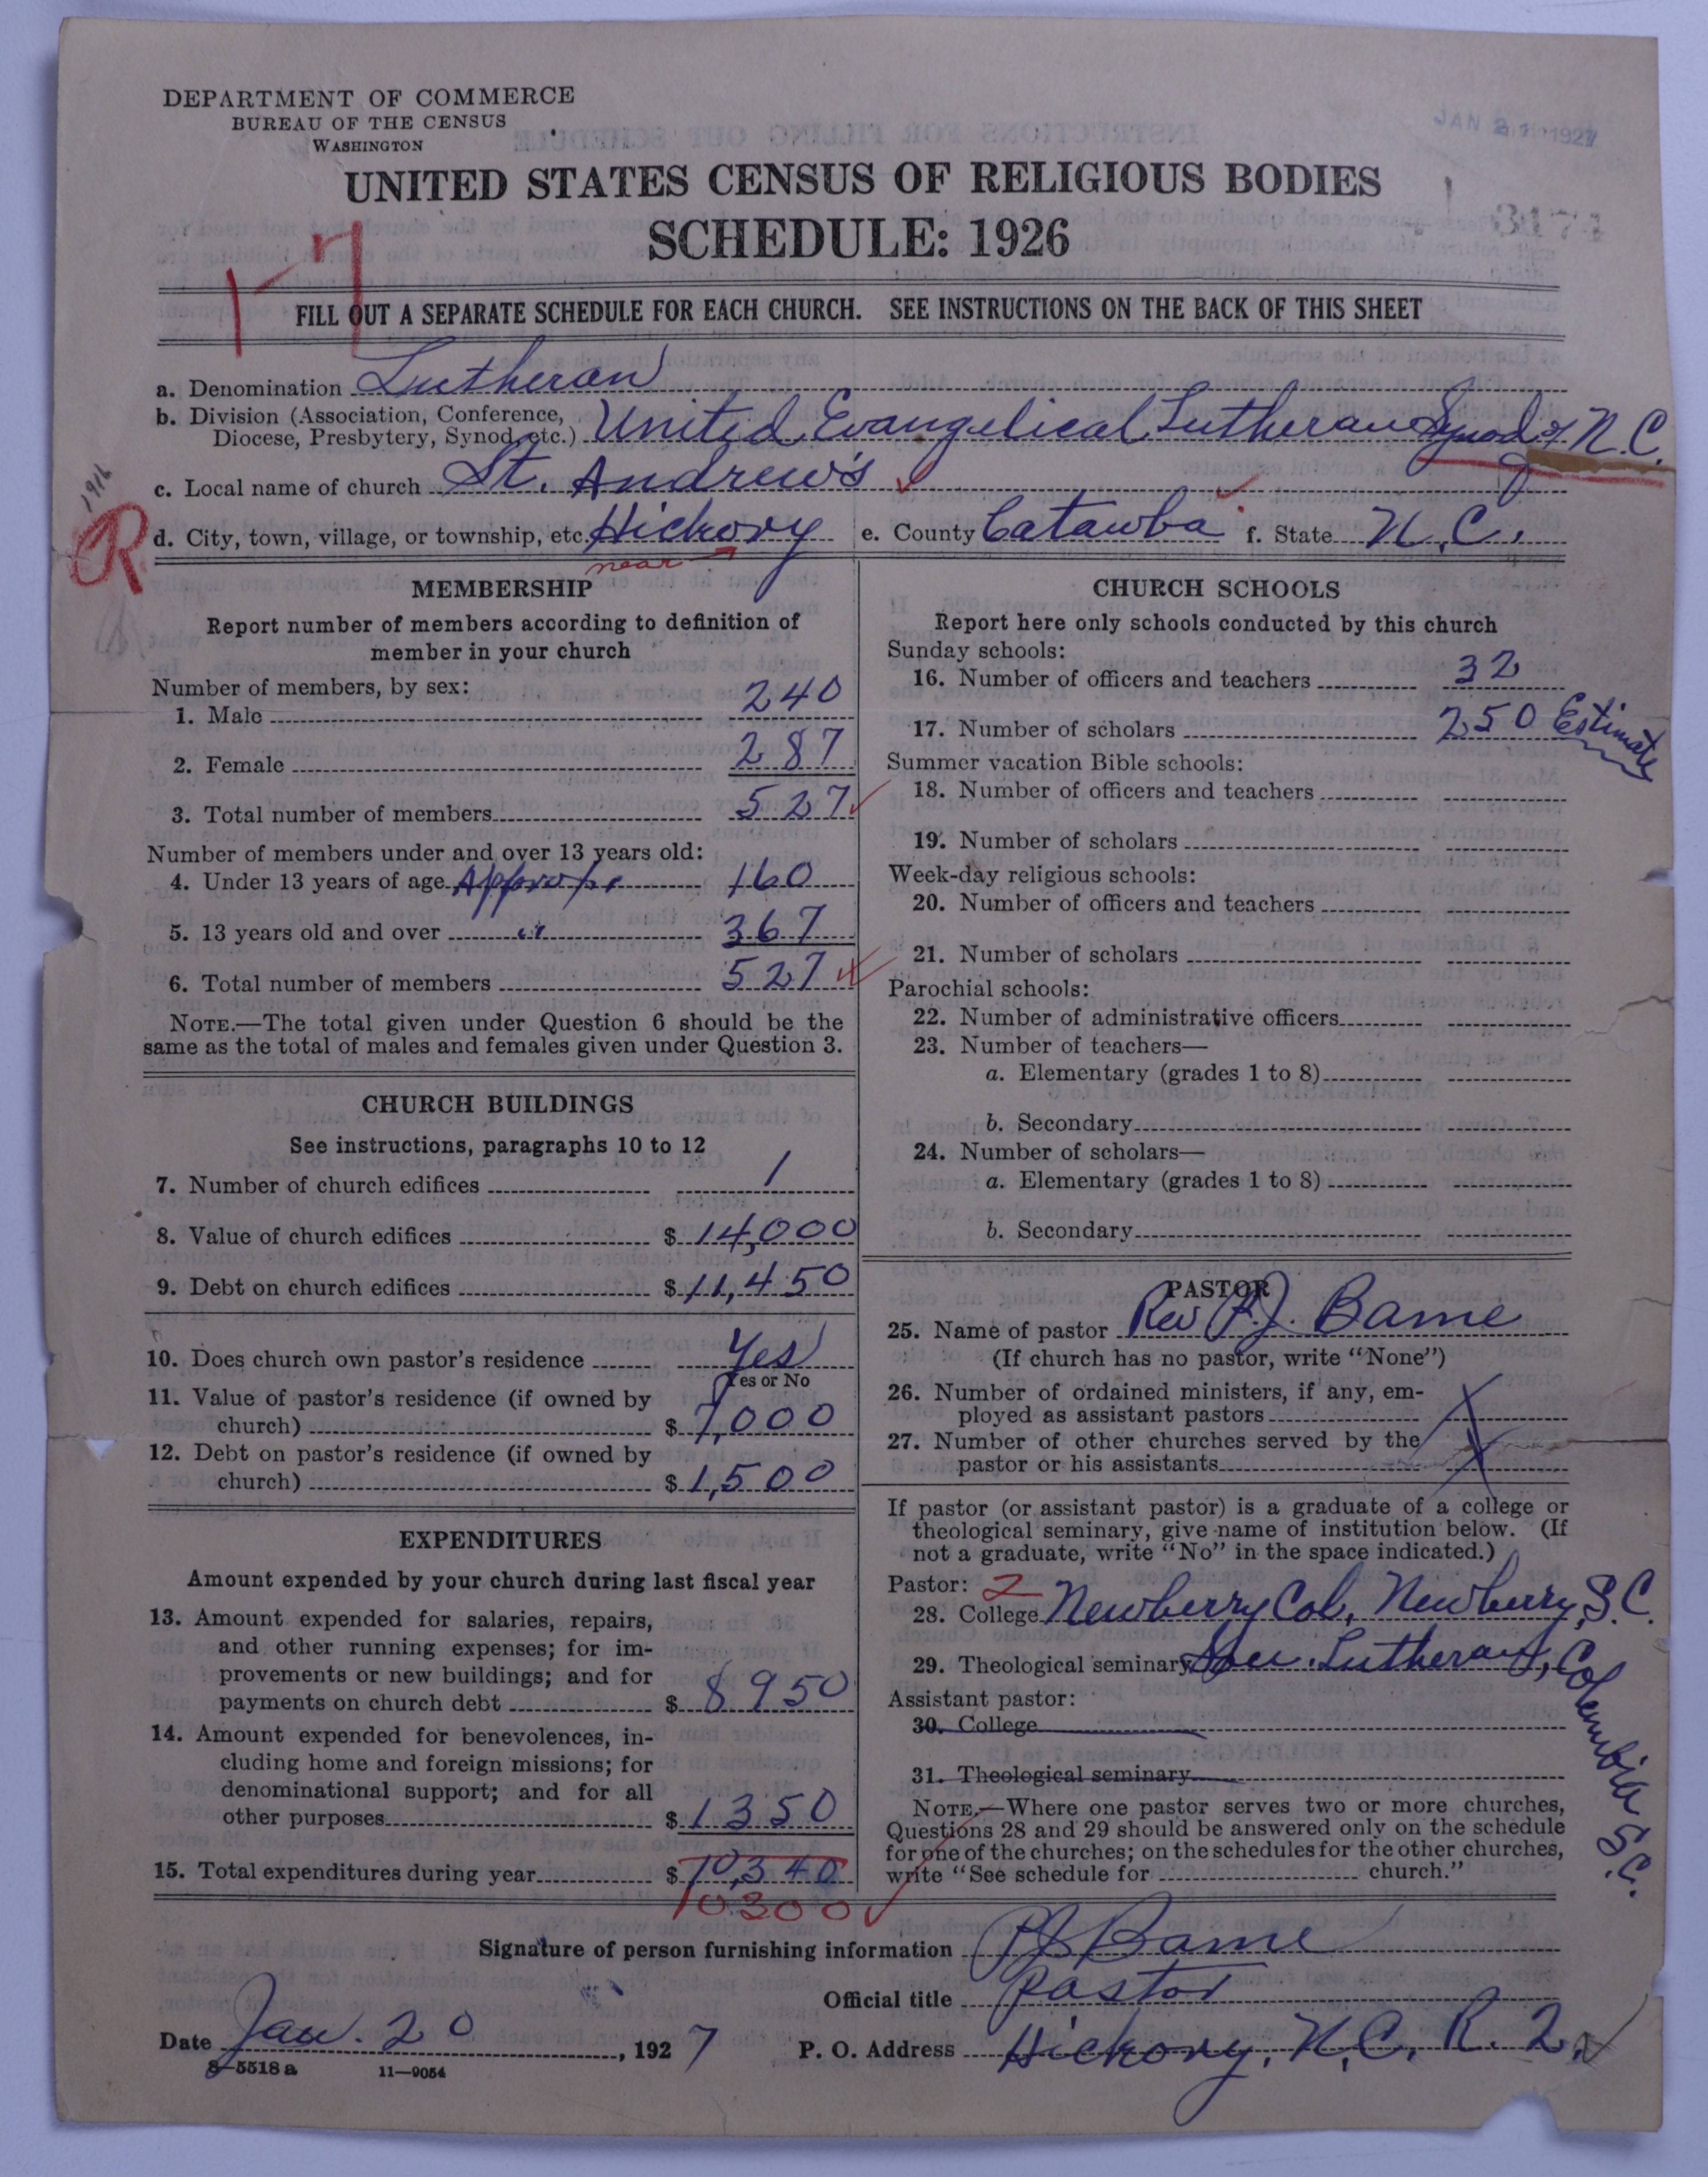 DEPARTMENT OF COMMERCE
BUREAU OF THE CENSUS
WASHINGTON
JAN 21 1927
UNITED STATES CENSUS OF RELIGIOUS BODIES
SCHEDULE: 1926
17
FILL OUT A SEPARATE SCHEDULE FOR EACH CHURCH. SEE INSTRUCTIONS ON THE BACK OF THIS SHEET
a. Denomination Lutheran
b. Division (Association, Conference, Diocese, Presbytery, Synod, etc.) United Evangelical Lutheran Synod of N.C.
c. Local name of church St. Andrew's
1916
R
d. City, town, village, or township, etc. Hickory e. County Catawba f. State N.C.
near
MEMBERSHIP
Report number of members according to definition of
member in your church
Number of members, by sex:
1. Male 240
2. Female 287
3. Total number of members 527
Number of members under and over 13 years old:
4. Under 13 years of age Approx. 160
5. 13 years old and over " 367
6. Total number of members 527
NOTE.—The total given under Question 6 should be the
same as the total of males and females given under Question 3.
CHURCH BUILDINGS
See instructions, paragraphs 10 to 12
7. Number of church edifices 1
8. Value of church edifices $ 14,000
9. Debt on church edifices $ 11,450
10. Does church own pastor's residence Yes
Yes or No
11. Value of pastor's residence (if owned by
church) $ 7,000
12. Debt on pastor's residence (if owned by
church) $ 1,500
EXPENDITURES
Amount expended by your church during last fiscal year
13. Amount expended for salaries, repairs,
and other running expenses; for im-
provements or new buildings; and for
payments on church debt $ 8950
14. Amount expended for benevolences, in-
cluding home and foreign missions; for
denominational support; and for all
other purposes $ 1350
15. Total expenditures during year $ 10,340
10300
CHURCH SCHOOLS
Report here only schools conducted by this church
Sunday schools:
16. Number of officers and teachers 32
17. Number of scholars 250 Estimate
Summer vacation Bible schools:
18. Number of officers and teachers
19. Number of scholars
Week-day religious schools:
20. Number of officers and teachers
21. Number of scholars
Parochial schools:
22. Number of administrative officers
23. Number of teachers—
a. Elementary (grades 1 to 8)
b. Secondary
24. Number of scholars—
a. Elementary (grades 1 to 8)
b. Secondary
PASTOR
25. Name of pastor Rev P.J. Bame
(If church has no pastor, write "None")
26. Number of ordained ministers, if any, em-
ployed as assistant pastors
27. Number of other churches served by the
pastor or his assistants
If pastor (or assistant pastor) is a graduate of a college or
theological seminary, give name of institution below. (If
not a graduate, write "No" in the space indicated.)
Pastor: 2
28. College Newberry Col, Newberry, S.C.
29. Theological seminary Sou. Lutheran, Columbia S.C.
Assistant pastor:
30. College
31. Theological seminary
NOTE.—Where one pastor serves two or more churches,
Questions 28 and 29 should be answered only on the schedule
for one of the churches; on the schedules for the other churches,
write "See schedule for church."
Signature of person furnishing information PJ Bame
Official title Pastor
Date Jan. 20, 1927 P. O. Address Hickory, N.C. R. 2.
8-5518 a 11—9054